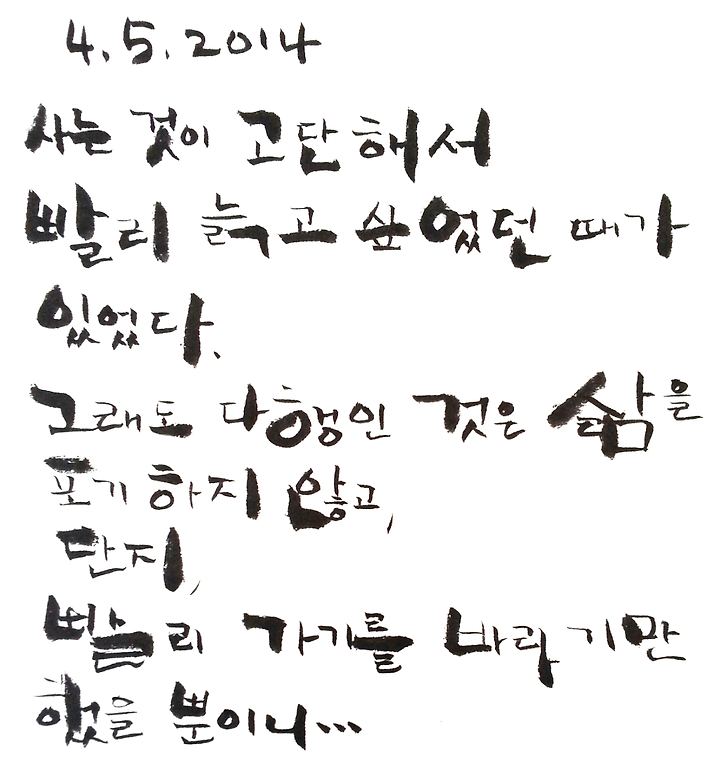 4.5.2014
사는 것이 고단해서
빨리 늙고 싶었던 때가
있었다.
그래도 다행인 것은 삶을
포기하지 않고,
단지,
빨리 가기를 바라기만
했을 뿐이니...